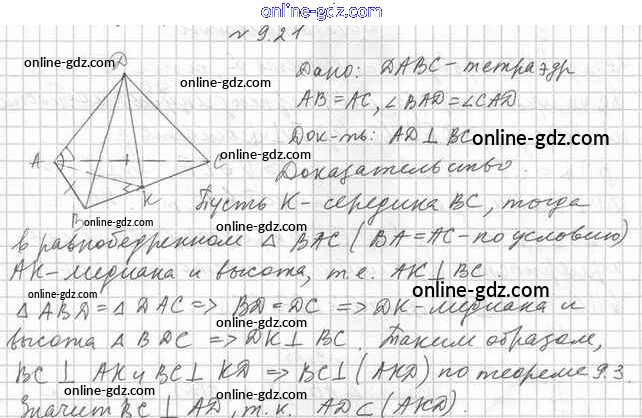 online-gdz.com
№ 9.21
D
online-gdz.com
Дано: DABC - тетраэдр
AB=AC, ∠BAD=∠CAD
Док-ть: AD⊥BC online-gdz.com
A C online-gdz.com
Доказательство.
K
B online-gdz.com
Пусть K - середина BC, тогда
в равнобедренном △ BAC (BA=AC - по условию)
online-gdz.com
AK - медиана и высота, т.е. AK⊥BC.
online-gdz.com
△ ABD = △ DAC => BD = DC => DK - медиана и
высота △ BDC => DK⊥ BC. Таким образом,
online-gdz.com
BC ⊥ AK и BC⊥ KD => BC⊥ (AKD) по теореме 9.3.
online-gdz.com
Значит BC ⊥ AD, т.к. AD⊂ (AKD).
online-gdz.com